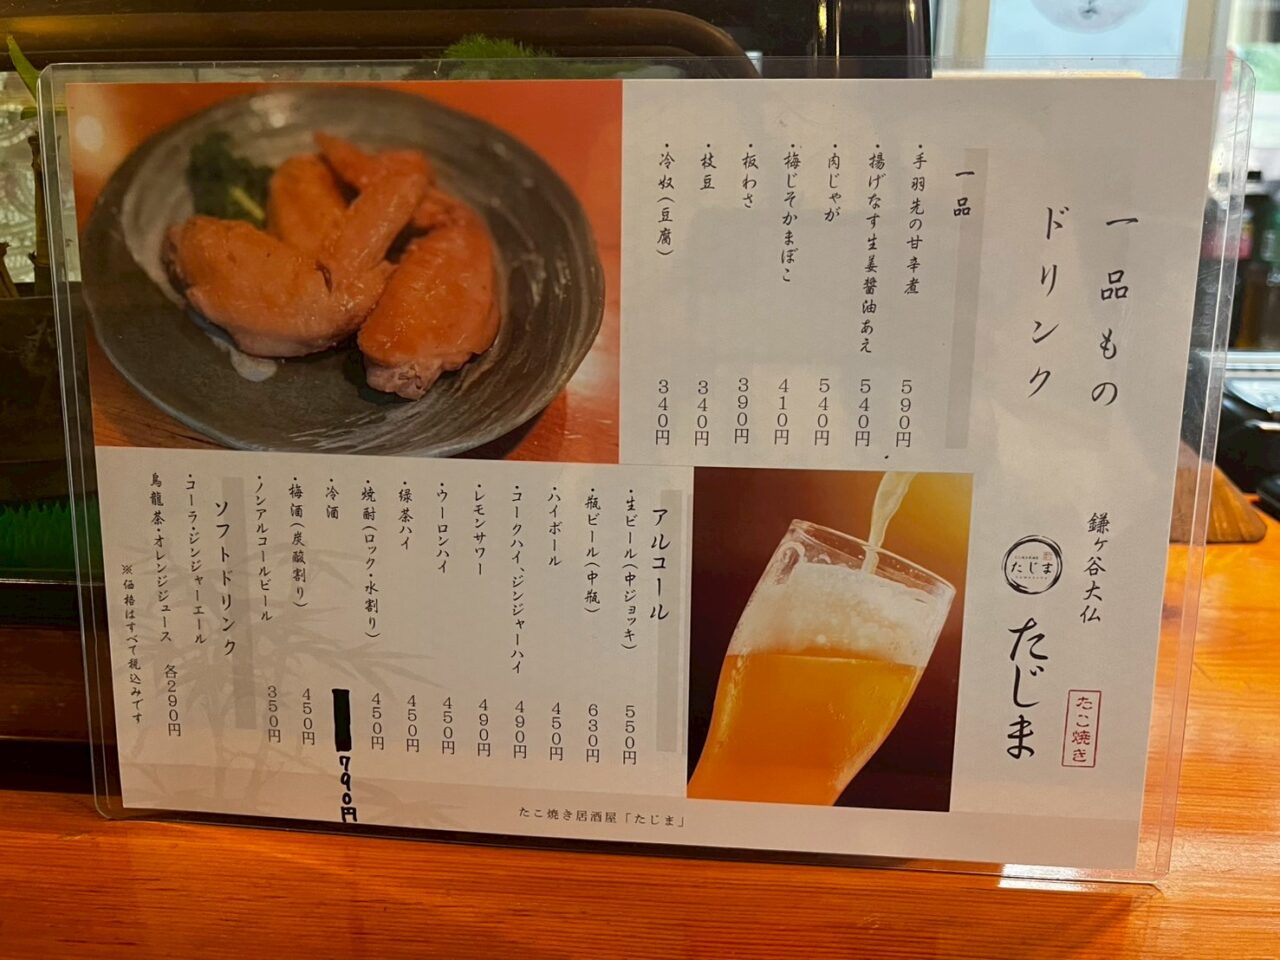 一品もの
ドリンク
鎌ヶ谷大仏
たじま
たじま
たこ焼き
一品
・手羽先の甘辛煮 590円
・揚げなす生姜醤油あえ 540円
・肉じゃが 540円
・梅じそかまぼこ 410円
・板わさ 390円
・枝豆 340円
・冷奴(豆腐) 340円
アルコール
・生ビール(中ジョッキ) 550円
・瓶ビール(中瓶) 630円
・ハイボール 450円
・コークハイ、ジンジャーハイ 490円
・レモンサワー 490円
・ウーロンハイ 450円
・緑茶ハイ 450円
・焼酎(ロック・水割り) 450円
・冷酒 790円
・梅酒(炭酸割り) 450円
・ノンアルコールビール 350円
ソフトドリンク
・コーラ・ジンジャーエール
烏龍茶・オレンジジュース 各290円
※価格はすべて税込みです
たこ焼き居酒屋「たじま」